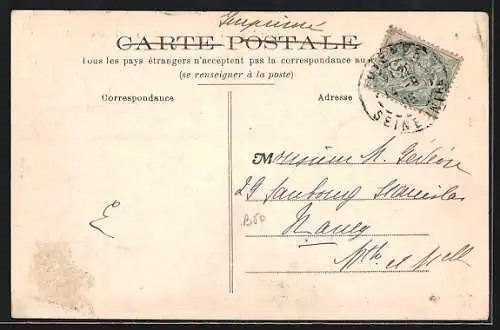 Imprimé
CARTE POSTALE
Tous les pays étrangers n'acceptent pas la correspondance au
(se renseigner à la poste)
Correspondance
Adresse
SEINE
Monsieur M. Gédéon
29 Faubourg Stanislas
B50
Nancy
Mthe et Mselle
E